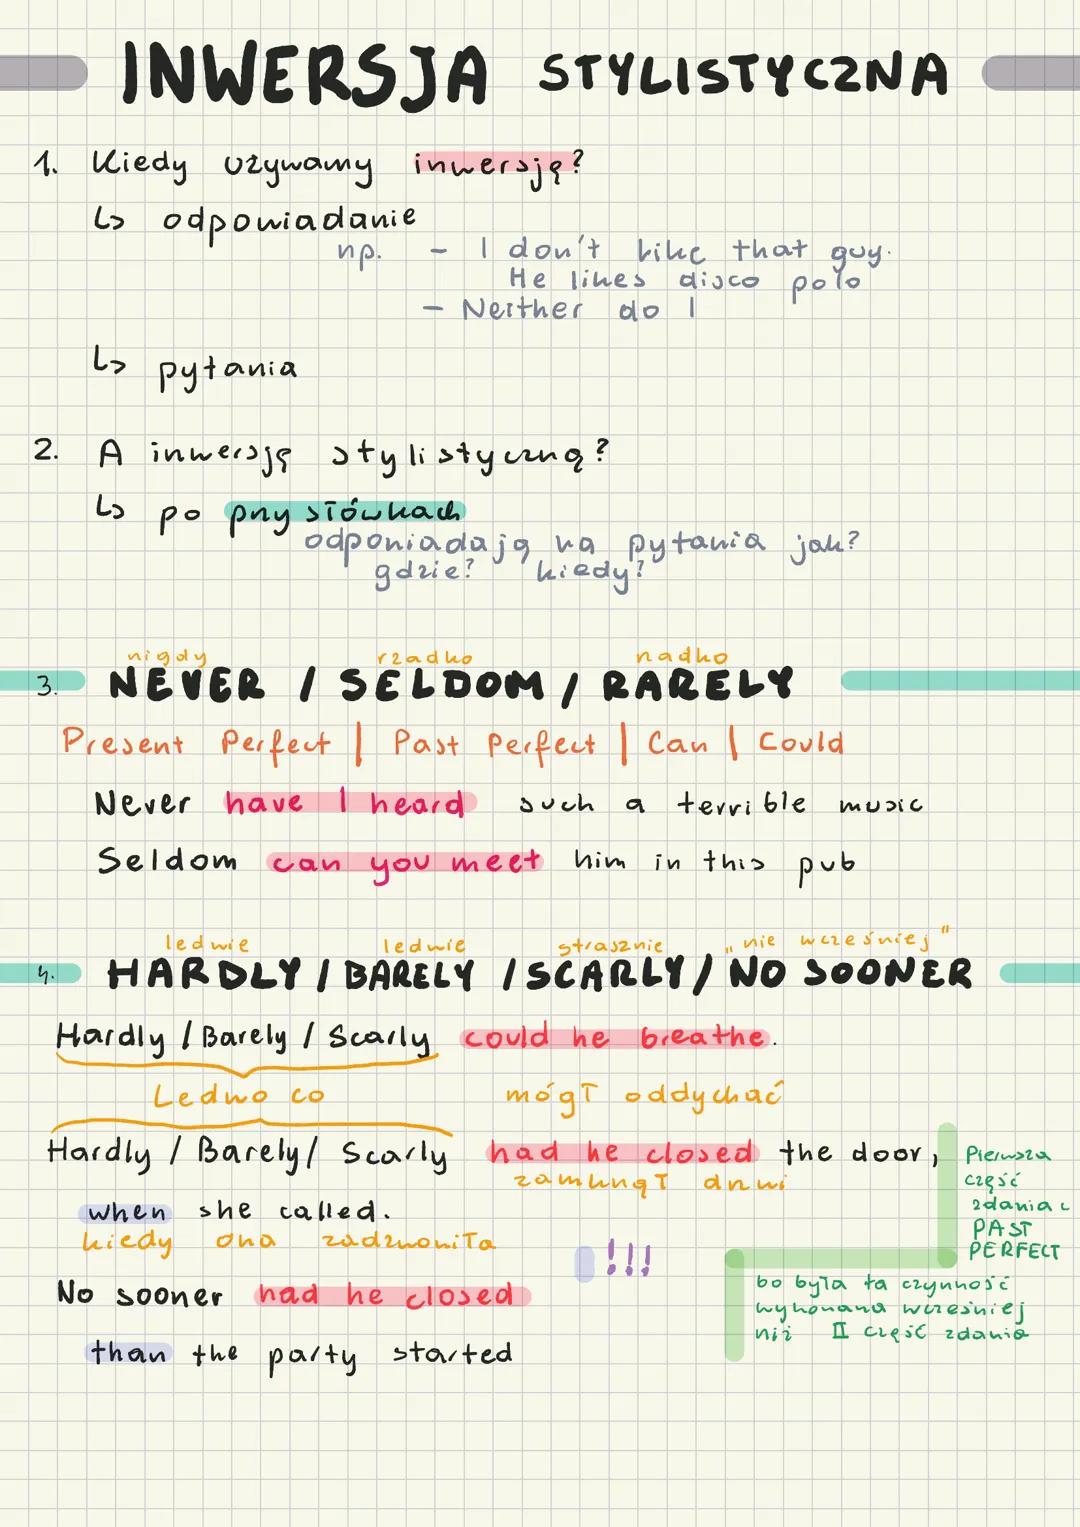 INWERSJA STYLISTYCZNA
1. Kiedy używamy inwersję?
↳ odpowiadanie
np. - I don't like that guy.
He likes disco polo
- Neither do I
↳ pytania
2. A inwersję stylistyczną?
↳ po przysłówkach
odpowiadają na pytania jak?
gdzie? kiedy?
nigdy rzadko rzadko
3. NEVER / SELDOM / RARELY
Present Perfect | Past Perfect | Can | Could
Never have I heard such a terrible music
Seldom can you meet him in this pub
ledwie ledwie strasznie „nie wcześniej"
4. HARDLY / BARELY / SCARLY / NO SOONER
Hardly / Barely / Scarly could he breathe.
Ledwo co mógł oddychać
Hardly / Barely / Scarly had he closed the door,
zamknął drzwi
when she called.
kiedy ona zadzwoniła
Pierwsza
część
zdania c
PAST
PERFECT
!!!
bo była ta czynność
wykonana wcześniej
niż II część zdania
No sooner had he closed
than the party started